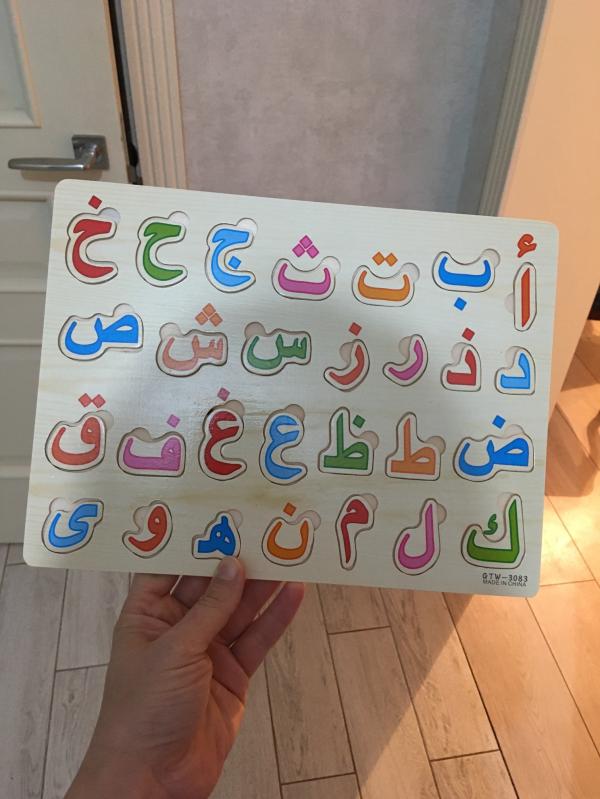 أ ب ت ث ج ح خ
د ذ ر ز س ش ص
ض ط ظ ع غ ف ق
ك ل م ن ه و ى
GTW-3083
MADE IN CHINA